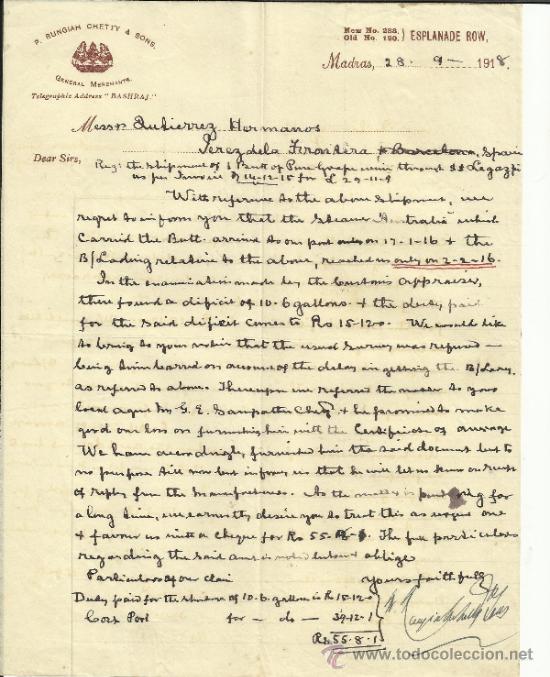 P. RUNGIAH CHETTY & SONS.
GENERAL MERCHANTS.
Telegraphic Address "BASHRAJ."
New No. 288.
Old No. 190.
} ESPLANADE ROW,
Madras, 28 - 9 - 1918
Messrs Gutierrez Hermanos
Jerez dela Frontera Barcelona, Spain
Dear Sirs,
Reg: the shipment of 1 Butt of Pure Grape wine through SS Legazpi
as per Invoice of 14-12-15 for £ 29-11-9
With reference to the above shipment, we
regret to inform you that the Steamer Australia which
Carried the Butt. arrived to our port only on 17-1-16 & the
B/Lading relative to the above, reached us only on 2-2-16.
In the examination made by the Customs appraiser,
there found a deficit of 10.6 gallons & the duty paid
for the said deficit comes to Rs 15-12-0. We would like
to bring to your notice that the usual survey was refused
being time barred on account of the delay in getting the B/Ladg.
as referred to above. Thereupon we referred the matter to your
local agent Mr G. E. Chetty & he promised to make
good our loss on furnishing him with the Certificate of average
We have accordingly furnished him the said document but to
no purpose till now but informs us that he will let us know on receipt
of reply from the Manufacturers. As the matter is pending for
a long time, we earnestly desire you to treat this as urgent one
& favour us with a cheque for Rs 55-8-1. The full particulars
regarding the said amt is noted below & oblige
Particulars of our claim
Yours faithfully
Duty paid for the shortage of 10.6 gallons is Rs 15-12-0
Cost Port for - do - 39-12-1
Rs 55-8-1
www.todocoleccion.net